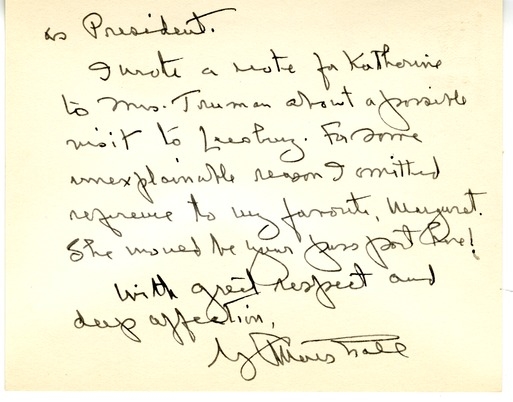 as President.
I wrote a note for Katherine
to Mrs. Truman about a possible
visit to Leesburg. For some
unexplainable reason I omitted
reference to my favorite, Margaret.
She would be your pass port here!
With great respect and
deep affection,
G. C. Marshall